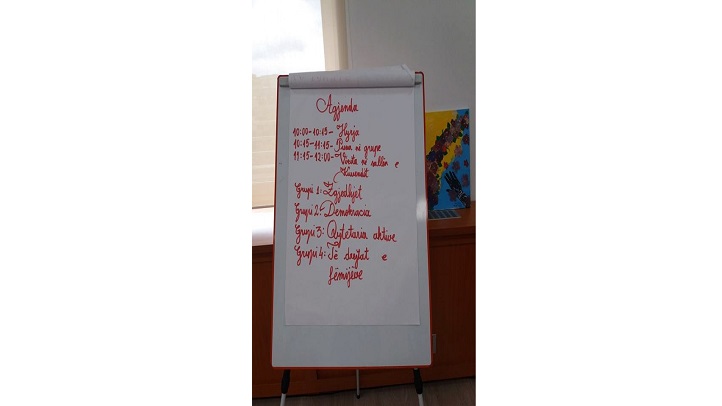 Agjenda
10:00-10:15- Hyrja
10:15-11:15- Puna në grupe
11:15-12:00- Vizita në sallën e
Kuvendit
Grupi 1: Zgjedhjet
Grupi 2: Demokracia
Grupi 3: Qytetaria aktive
Grupi 4: Të drejtat e
fëmijëve